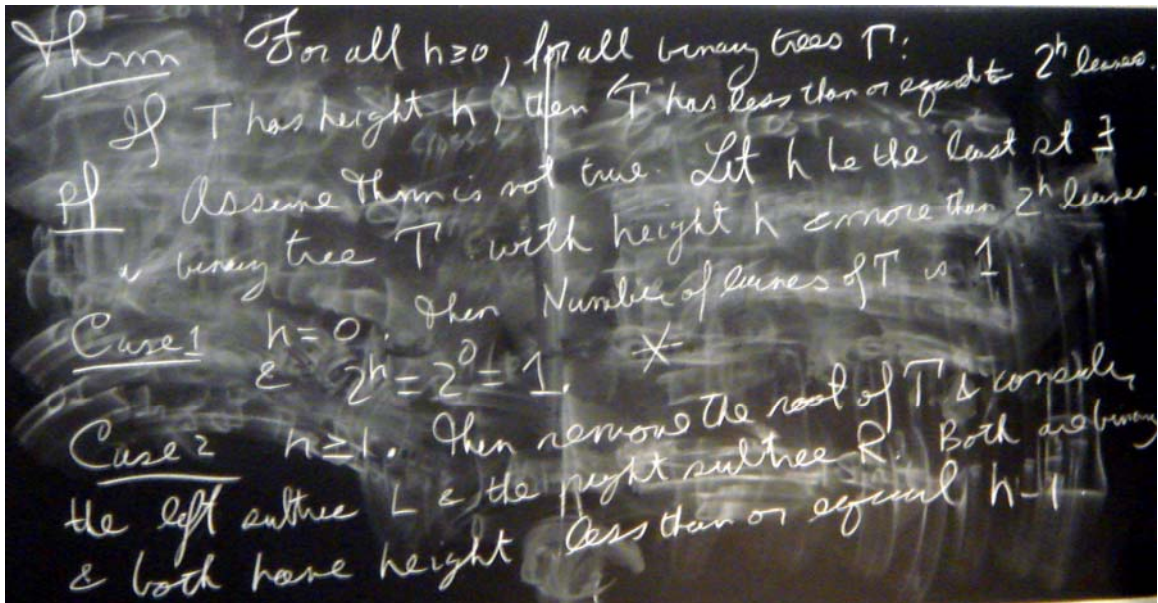 Thrm For all h≥0, for all binary trees T:
If T has height h, then T has less than or equal to 2^h leaves.
Pf Assume Thrm is not true. Let h be the least st ∃
a binary tree T with height h & more than 2^h leaves
Case 1 h=0. Then Number of leaves of T is 1
& 2^h = 2^0 = 1. ※
Case 2 h≥1. Then remove the root of T & consider
the left subtree L & the right subtree R. Both are binary
& both have height less than or equal h-1